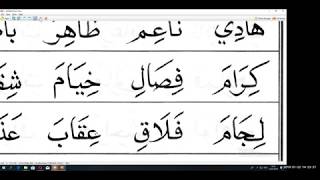 هَادِي نَاعِم ظَاهِر
كِرَامَ فِصَالِ خِيَامَ
لِجَامَ فَلَاقِ عِقَابَ